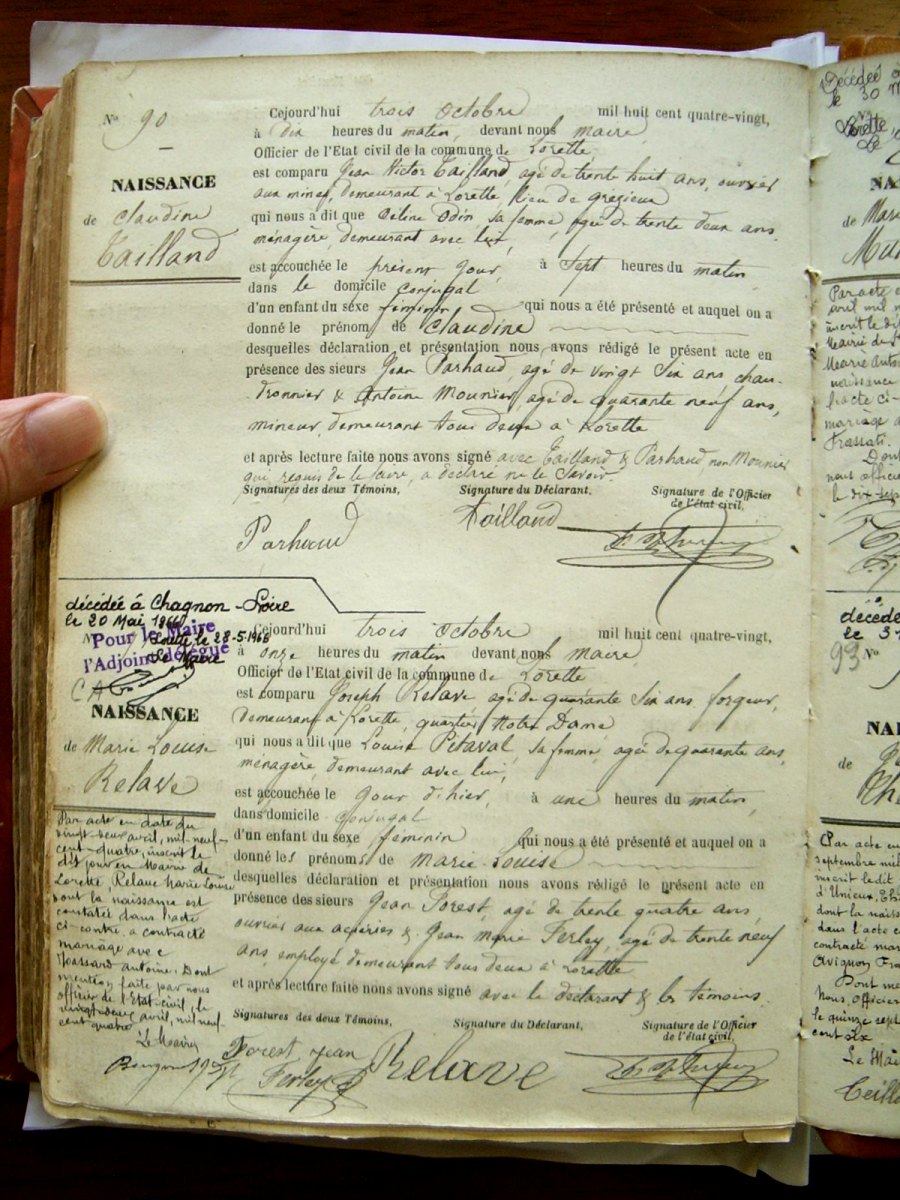 N° 90
NAISSANCE
de Claudine
Tailland
Cejourd'hui trois Octobre mil huit cent quatre-vingt,
à dix heures du matin, devant nous maire
Officier de l'Etat civil de la commune de Lorette
est comparu Jean Victor Tailland, agé de trente huit ans, ouvrier
aux mines, demeurant à Lorette, lieu de grézieux
qui nous a dit que Odin sa femme, agée de trente deux ans.
ménagère, demeurant avec lui,
est accouchée le présent jour, à sept heures du matin
dans le domicile conjugal
d'un enfant du sexe féminin qui nous a été présenté et auquel on a
donné le prénom de Claudine
desquelles déclaration et présentation nous avons rédigé le présent acte en
présence des sieurs Jean Parhaud, agé de vingt six ans, chau-
dronnier & Antoine Mounier, agé de quarante neuf ans,
mineur, demeurant tous deux à Lorette
et après lecture faite nous avons signé avec Tailland & Parhaud non Mounier
qui, requis de le faire, a déclaré ne le savoir.
Signatures des deux Témoins, Signature du Déclarant, Signature de l'Officier
de l'état civil,
Parhaud Tailland
décédée à Chagnon - Loire
le 20 Mai 1966
Lorette le 28-5-1966
Le Maire
Pour le Maire
l'Adjoint délégué
NAISSANCE
de Marie Louise
Relave
Cejourd'hui trois Octobre mil huit cent quatre-vingt,
à onze heures du matin devant nous maire
Officier de l'Etat civil de la commune de Lorette
est comparu Joseph Relave agé de quarante six ans, forgeur,
demeurant à Lorette, quartier Notre Dame
qui nous a dit que Louise Pitaval, sa femme, agée de quarante ans,
ménagère, demeurant avec lui,
est accouchée le jour d'hier, à une heures du matin,
dans domicile conjugal
d'un enfant du sexe féminin qui nous a été présenté et auquel on a
donné les prénoms de Marie-Louise
desquelles déclaration et présentation nous avons rédigé le présent acte en
présence des sieurs Jean Forest, agé de trente quatre ans,
ouvrier aux aciéries & Jean Marie Ferley, agé de trente neuf
ans, employé demeurant tous deux à Lorette
et après lecture faite nous avons signé avec le déclarant & les témoins.
Signatures des deux Témoins, Signature du Déclarant, Signature de l'Officier
de l'état civil,
Forest Jean Relave
Ferley
Par acte en date du
vingt-deux avril, mil neuf-
cent-quatre, inscrit le
dit jour en Mairie de
Lorette, Relave Marie Louise
dont la naissance est
constatée dans l'acte
ci-contre, a contracté
mariage avec
antoine. Dont
mention faite par nous
officier de l'Etat-civil, le
vingt-deux avril, mil neuf-
cent quatre
Le Maire
Décédé
le 30
Lorette,
Le
de Mari
Par acte
avril mil
inscrit le di
Mairie de
Marie
naissance
l'acte ci-
mariage
Frassati.
Dont
nous officier
le dix-sept
décédé
le 3
93 N°
de
Par acte en
septembre mil
inscrit ledit
d'Unieux,
dont la nais
dans l'acte c
contracté mar
Avignon Fra
Dont me
Nous, officier
le quinze sept
cent six
Le Ma